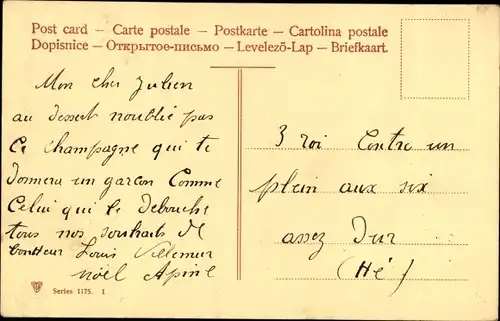 Post card – Carte postale – Postkarte – Cartolina postale
Dopisnice – Открытое-письмо – Levelező-Lap – Briefkaart.
Mon cher Julien
au dessert noublié pas
Ce champagne qui te
donnera un garcon Comme
Celui qui le debouche
tous nos souhaits de
bonheur Louis Villemur
noël
3 roi Contre un
plein aux six
assez Dur
(Hé)
Series 1175. 1